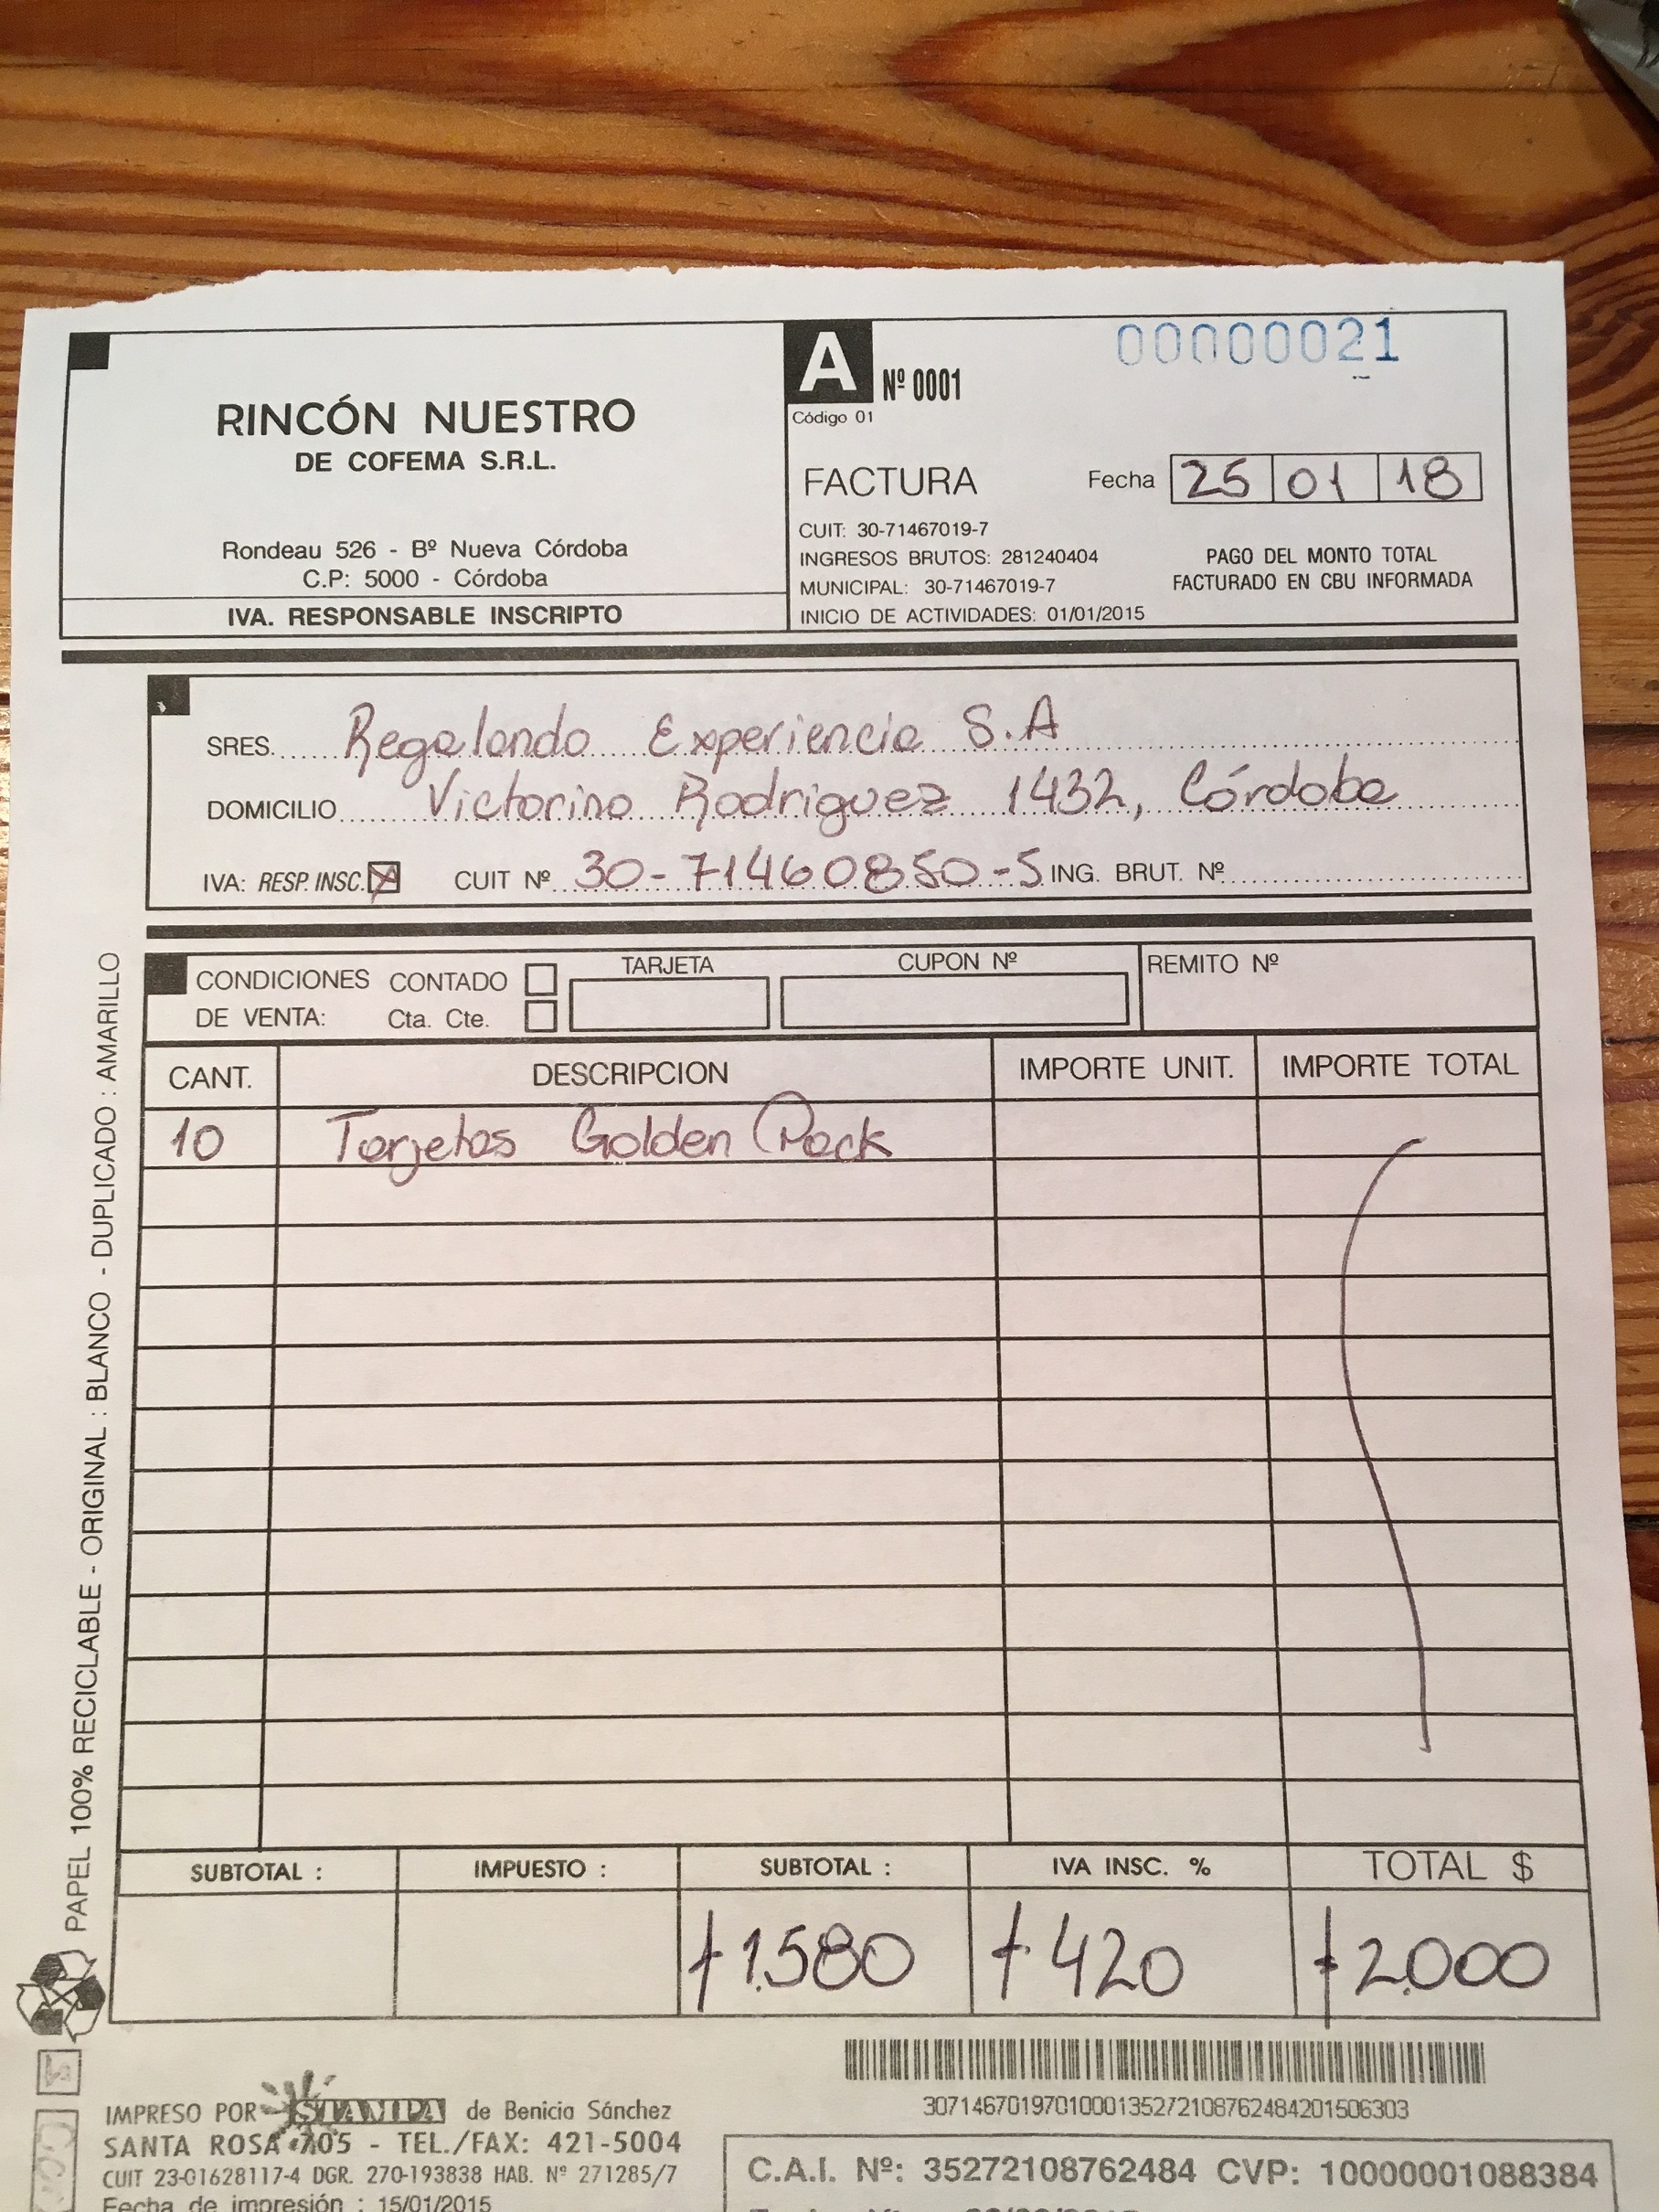 0000021
RINCÓN NUESTRO
DE COFEMA S.R.L.
Rondeau 526 - Bº Nueva Córdoba
C.P: 5000 - Córdoba
IVA. RESPONSABLE INSCRIPTO
A Nº 0001
Código 01
FACTURA Fecha 25 01 18
CUIT: 30-71467019-7
INGRESOS BRUTOS: 28124040
MUNICIPAL: 30-71467019-7
INICIO DE ACTIVIDADES: 01/01/2015
PAGO DEL MONTO TOTAL
FACTURADO EN CBU INFORMADA
SRES. Regalando Experiencia S.A
DOMICILIO Victorino Rodriguez 1432, Córdoba
IVA: RESP. INSC. X CUIT Nº 30-71460850-5 ING. BRUT. Nº
CONDICIONES CONTADO TARJETA CUPON Nº REMITO Nº
DE VENTA: Cta. Cte.
CANT. DESCRIPCION IMPORTE UNIT. IMPORTE TOTAL
10 Tarjetas Golden Pack
SUBTOTAL : IMPUESTO : SUBTOTAL : IVA INSC. % TOTAL $
1.580 420 2.000
IMPRESO POR STAMPA de Benicia Sánchez
SANTA ROSA 705 - TEL./FAX: 421-5004
CUIT 23-01628117-4 DGR. 270-193838 HAB. Nº 271285/7
Fecha de impresión : 15/01/2015
3071467019701000135272108762484201506303
C.A.I. Nº: 35272108762484 CVP: 1000001088384
PAPEL 100% RECICLABLE - ORIGINAL : BLANCO - DUPLICADO : AMARILLO